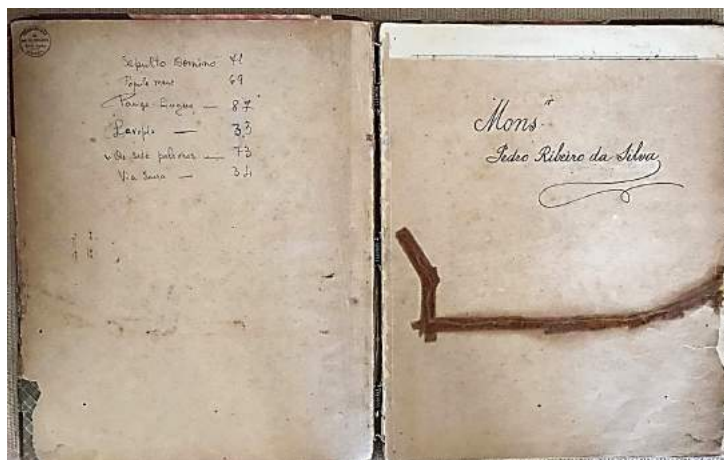 Sepulto Domino 41
Popule meus 69
Pange-Lingua — 87
— 33
As sete palavras — 73
Via Sacra — 34
Mons.r
Pedro Ribeiro da Silva